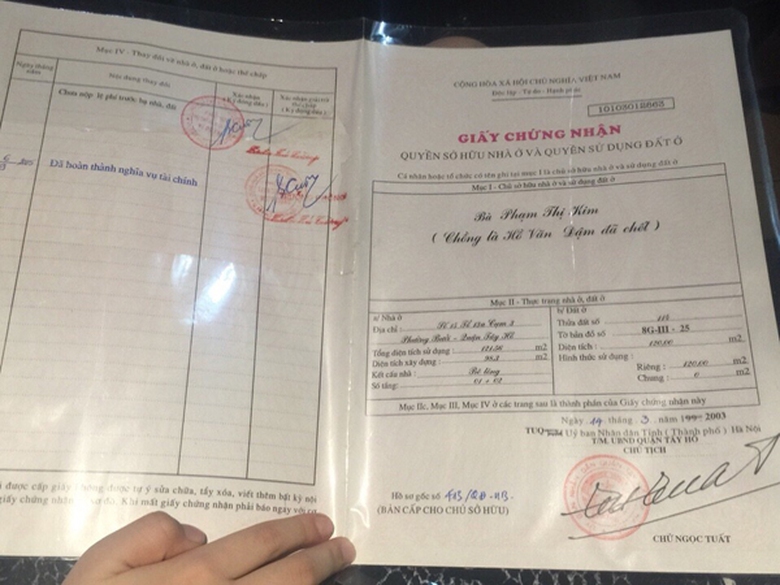 Mục IV - Thay đổi về nhà ở, đất ở hoặc thế chấp
Ngày tháng năm
Nội dung thay đổi
Xác nhận
(Ký đóng dấu)
Xác nhận giải trừ
thế chấp
(Ký đóng dấu)
Chưa nộp: lệ phí trước bạ nhà, đất
Đã hoàn thành nghĩa vụ tài chính
được cấp giấy không được tự ý sửa chữa, tẩy xóa, viết thêm bất kỳ nội
giấy chứng nhận Khi mất giấy chứng nhận phải báo ngay với
CỘNG HÒA XÃ HỘI CHỦ NGHĨA VIỆT NAM
Độc lập - Tự do - Hạnh phúc
10103012663
GIẤY CHỨNG NHẬN
QUYỀN SỞ HỮU NHÀ Ở VÀ QUYỀN SỬ DỤNG ĐẤT Ở
Cá nhân hoặc tổ chức có tên ghi tại mục I là chủ sở hữu nhà ở và sử dụng đất ở
Mục I - Chủ sở hữu nhà ở và sử dụng đất ở
Bà Phạm Thị Kim
( Chồng là Hồ Văn Dậm đã chết )
Mục II - Thực trạng nhà ở, đất ở
a/ Nhà ở
Địa chỉ : Số 15 Tổ 12a Cụm 2
Phường Bưởi - Quận Tây Hồ
Tổng diện tích sử dụng : 121.56 m2
Diện tích xây dựng : 98.3 m2
Kết cấu nhà : Bê tông
Số tầng: 01 + 02
b/ Đất ở
Thửa đất số
Tờ bản đồ số 8G-III - 25
Diện tích : 120.00 m2
Hình thức sử dụng :
Riêng : 120.00 m2
Chung : 0 m2
Mục IIc, Mục III, Mục IV ở các trang sau là thành phần của Giấy chứng nhận này
Ngày 14 tháng 3 năm 2003
TUQ Uỷ ban Nhân dân Tỉnh ( Thành phố ) Hà Nội
T/M. UBND QUẬN TÂY HỒ
CHỦ TỊCH
Hồ sơ gốc số
(BẢN CẤP CHO CHỦ SỞ HỮU)
CHỬ NGỌC TUẤT